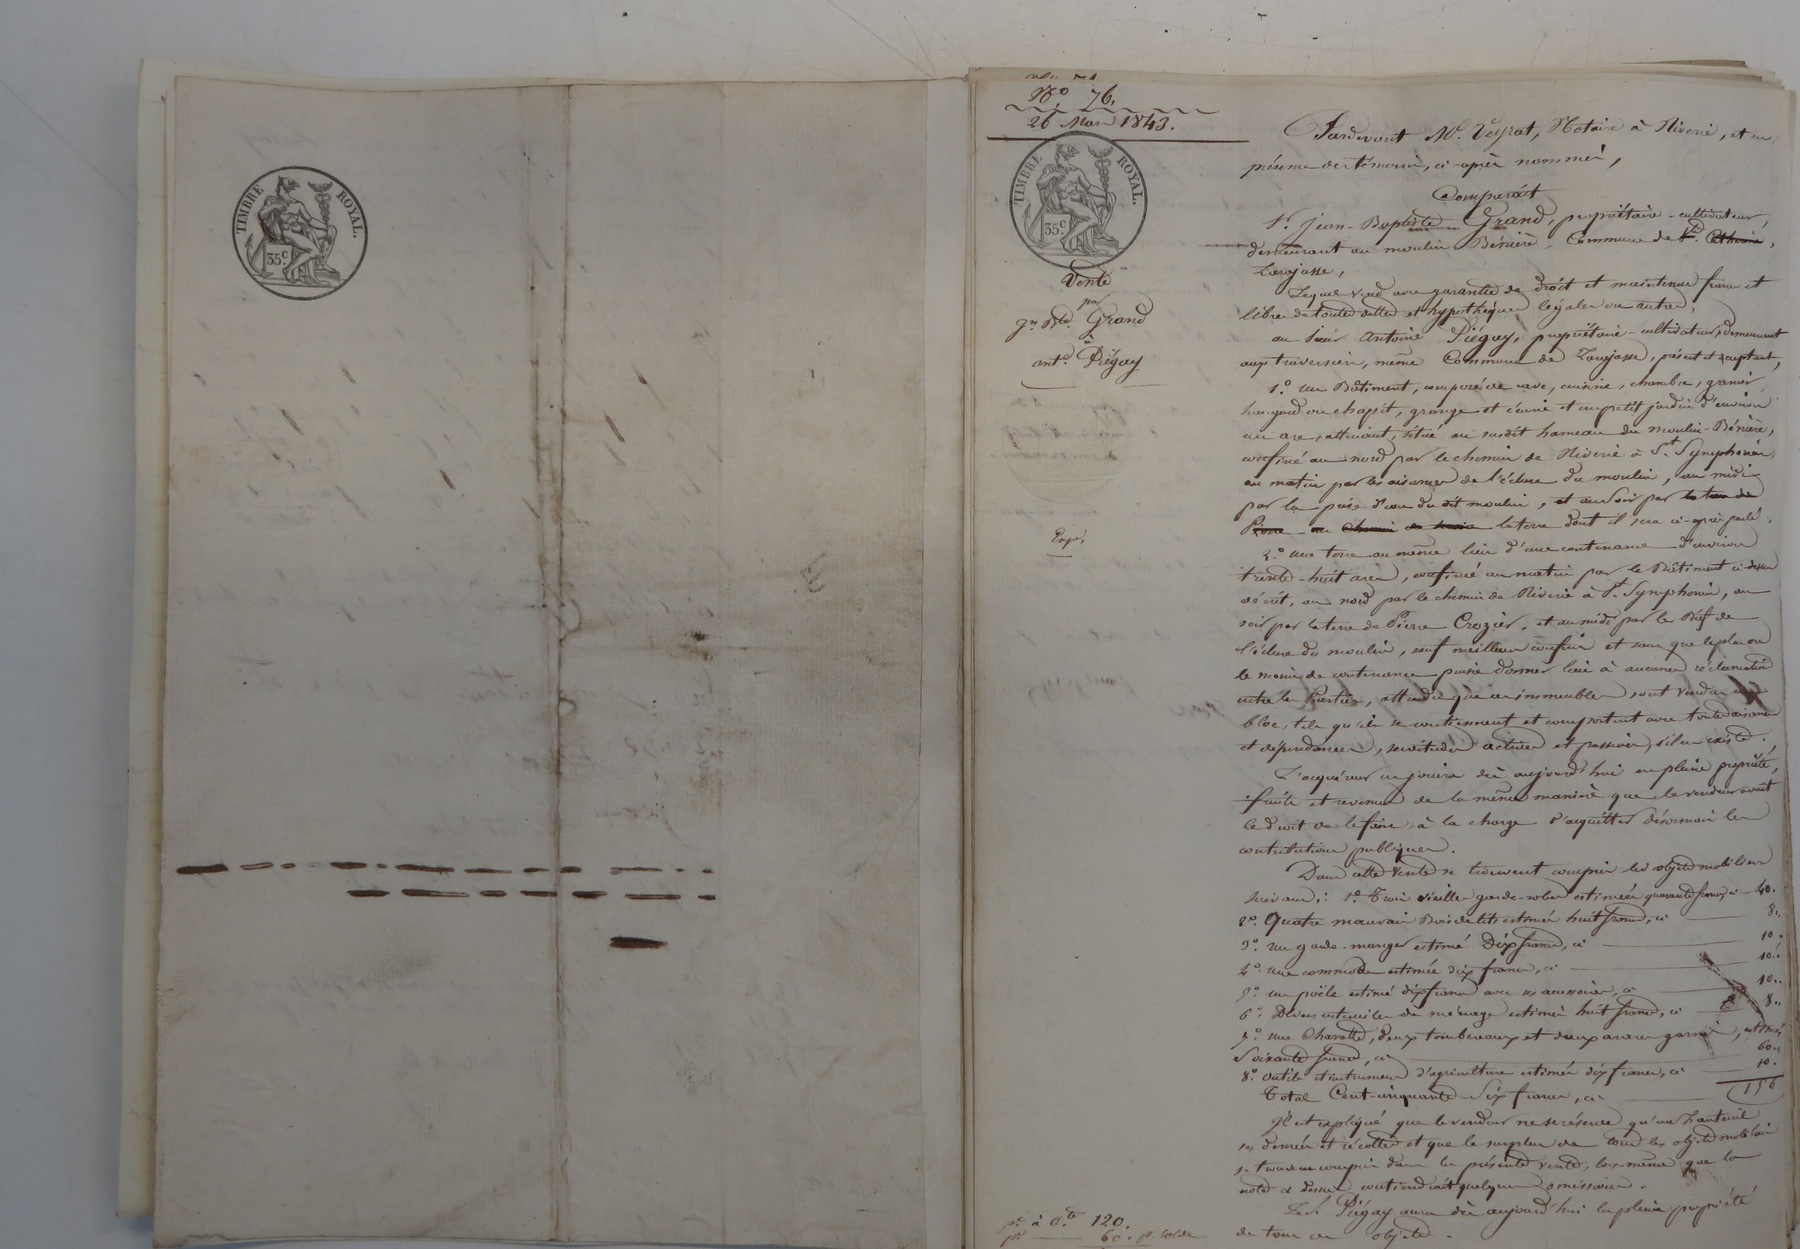 TIMBRE ROYAL.
35 c.
No 76.
26 Mars 1843.
TIMBRE ROYAL.
35 c.
Vente
par
Jn Bte Grand
à
ant. Piégay
Expé.
Pardevant Me. Veyrat, Notaire à Riverie, et en
présence des témoins, ci-après nommés,
Comparait
Sr. Jean-Baptiste Grand, propriétaire-cultivateur,
demeurant au moulin Bénière, Commune de Ste. Catherine,
Larajasse,
Lequel vend avec garantie de droit et maintenue franc et
libre de toutes dettes et hypothèques légales ou autres,
au sieur Antoine Piégay, propriétaire-cultivateur, demeurant
aux traversiers, même Commune de Larajasse, présent et acceptant,
1.o un Bâtiment, composé de cave, cuisine, chambre, grenier,
hangard ou chapit, grange et écurie et un petit jardin d'environ
un are, attenant, situé au susdit hameau du moulin-Bénière,
confiné au nord par le chemin de Riverie à St. Symphorien,
au matin par les aisances de l'écluse du moulin, au midi
par la prise d'eau du dit moulin, et au soir par la terre de
Pierre ou chemin la terre dont il sera ci-après parlé.
2.o une terre au même lieu d'une contenance d'environ
trente-huit ares, confinée au matin par le Bâtiment ci-dessus
décrit, au nord par le chemin de Riverie à St. Symphorien, au
soir par la terre de Pierre Crozier, et au midi par le Bief de
l'écluse du moulin, sauf meilleurs confins et sans que le plus ou
le moins de contenance puisse donner lieu à aucune réclamation
entre les Parties, attendu que ces immeubles sont vendus en
bloc, tels qu'ils se contiennent et comportent avec toutes aisances
et dépendances, servitudes actives et passives, s'il en existe.
L'acquéreur en jouira dès aujourd'hui en pleine propriété,
fruits et revenus de la même manière que le vendeur avait
le droit de le faire, à la charge d'acquitter désormais les
contributions publiques.
Dans cette vente se trouvent compris les objets mobiliers
suivans: 1.o Trois vieilles garde-robes estimées quarante francs, ci 40.
2.o Quatre mauvais Bois de lits estimés huit francs, ci 8.
3.o un garde-manger estimé Dix francs, ci 10.
4.o une commode estimée dix francs, ci 10.
5.o un poêle estimé dix francs avec ses accessoires, ci 10.
6.o Divers ustensiles de ménage estimés huit francs, ci 8.
7.o une Charrette, deux tombereaux et deux araires garnis, estimés
Soixante francs, ci 60.
8.o outils et instrumens d'agriculture estimés dix francs, ci 10.
Total Cent-cinquante-Six francs, ci 156
Il est expliqué que le vendeur ne se réserve qu'un fauteuil
ses denrées et récoltes et que le surplus de tous les objets mobiliers
se trouvent compris dans la présente vente, lors-même que la
note ci dessus contiendrait quelques omissions.
Le Sr. Piégay aura dès aujourd'hui la pleine propriété
de tous ces objets.
120.
60. pr. solde